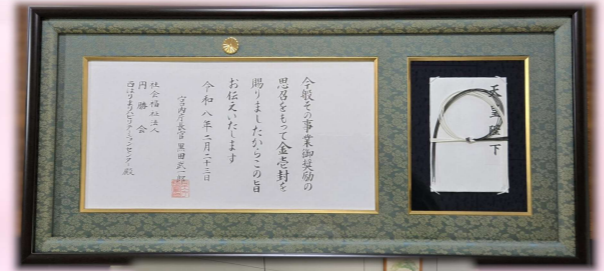 今般その事業御奨励の
思召をもって金壱封を
賜りましたからこの旨
お伝えいたします
令和八年二月二十三日
宮内庁長官 黒田武一郎
社会福祉法人
円勝会
西はりまリハビリテーションセンター殿
天皇陛下